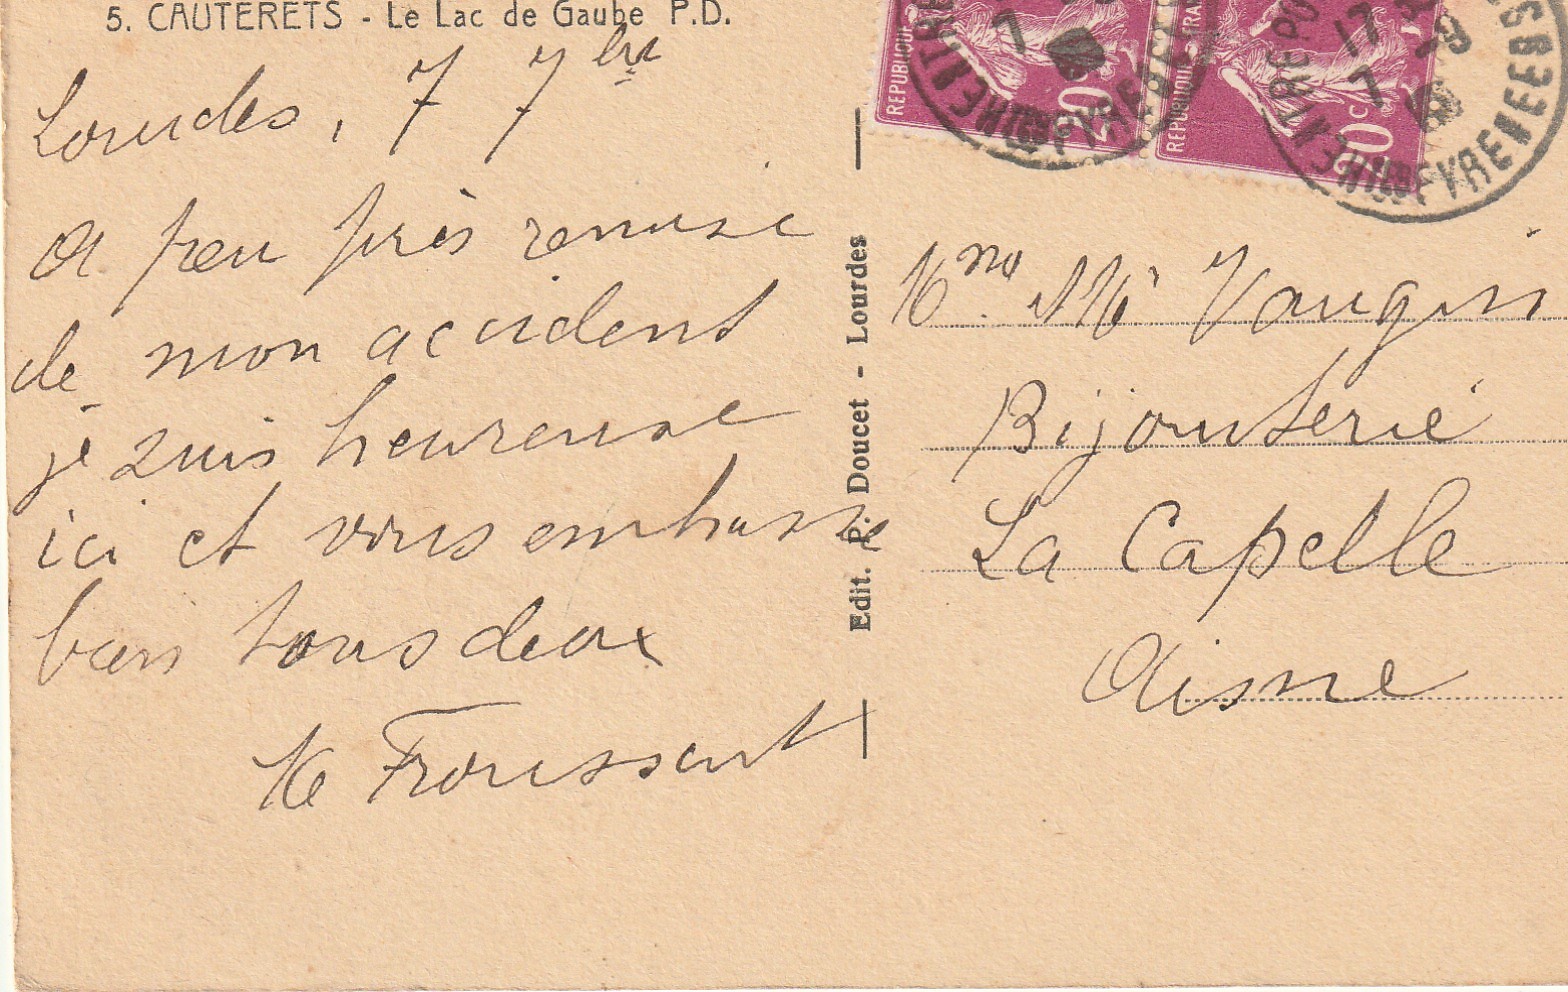 5. CAUTERETS - Le Lac de Gaube P.D.
Lourdes, 7 7bre
A peu près remise
de mon accident
je suis heureuse
ici et vous embrasse
bien tous deux
M Froussart
Edit. P. Doucet - Lourdes
REPUBLIQUE
20
REPUBLIQUE
20c
17
7 -9
PYRENEES
Mme et Mr Vaugin
Bijouterie
La Capelle
Aisne